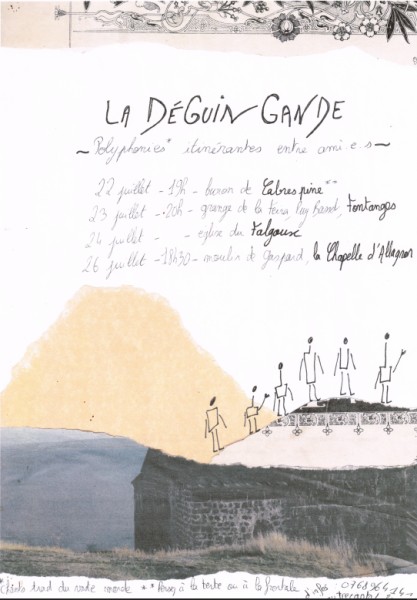 LA DÉGUINGANDE
~ Polyphonies* itinérantes entre ami.e.s ~
22 juillet - 19h - buron de Cabrespine**
23 juillet - 20h - grange de la Puy Basset, Fontanges
24 juillet - - église du Falgoux
26 juillet - 18h30 - moulin de Gaspard, la Chapelle d'Allagnon
trad du vaste monde ** à la tente ou à la frontale